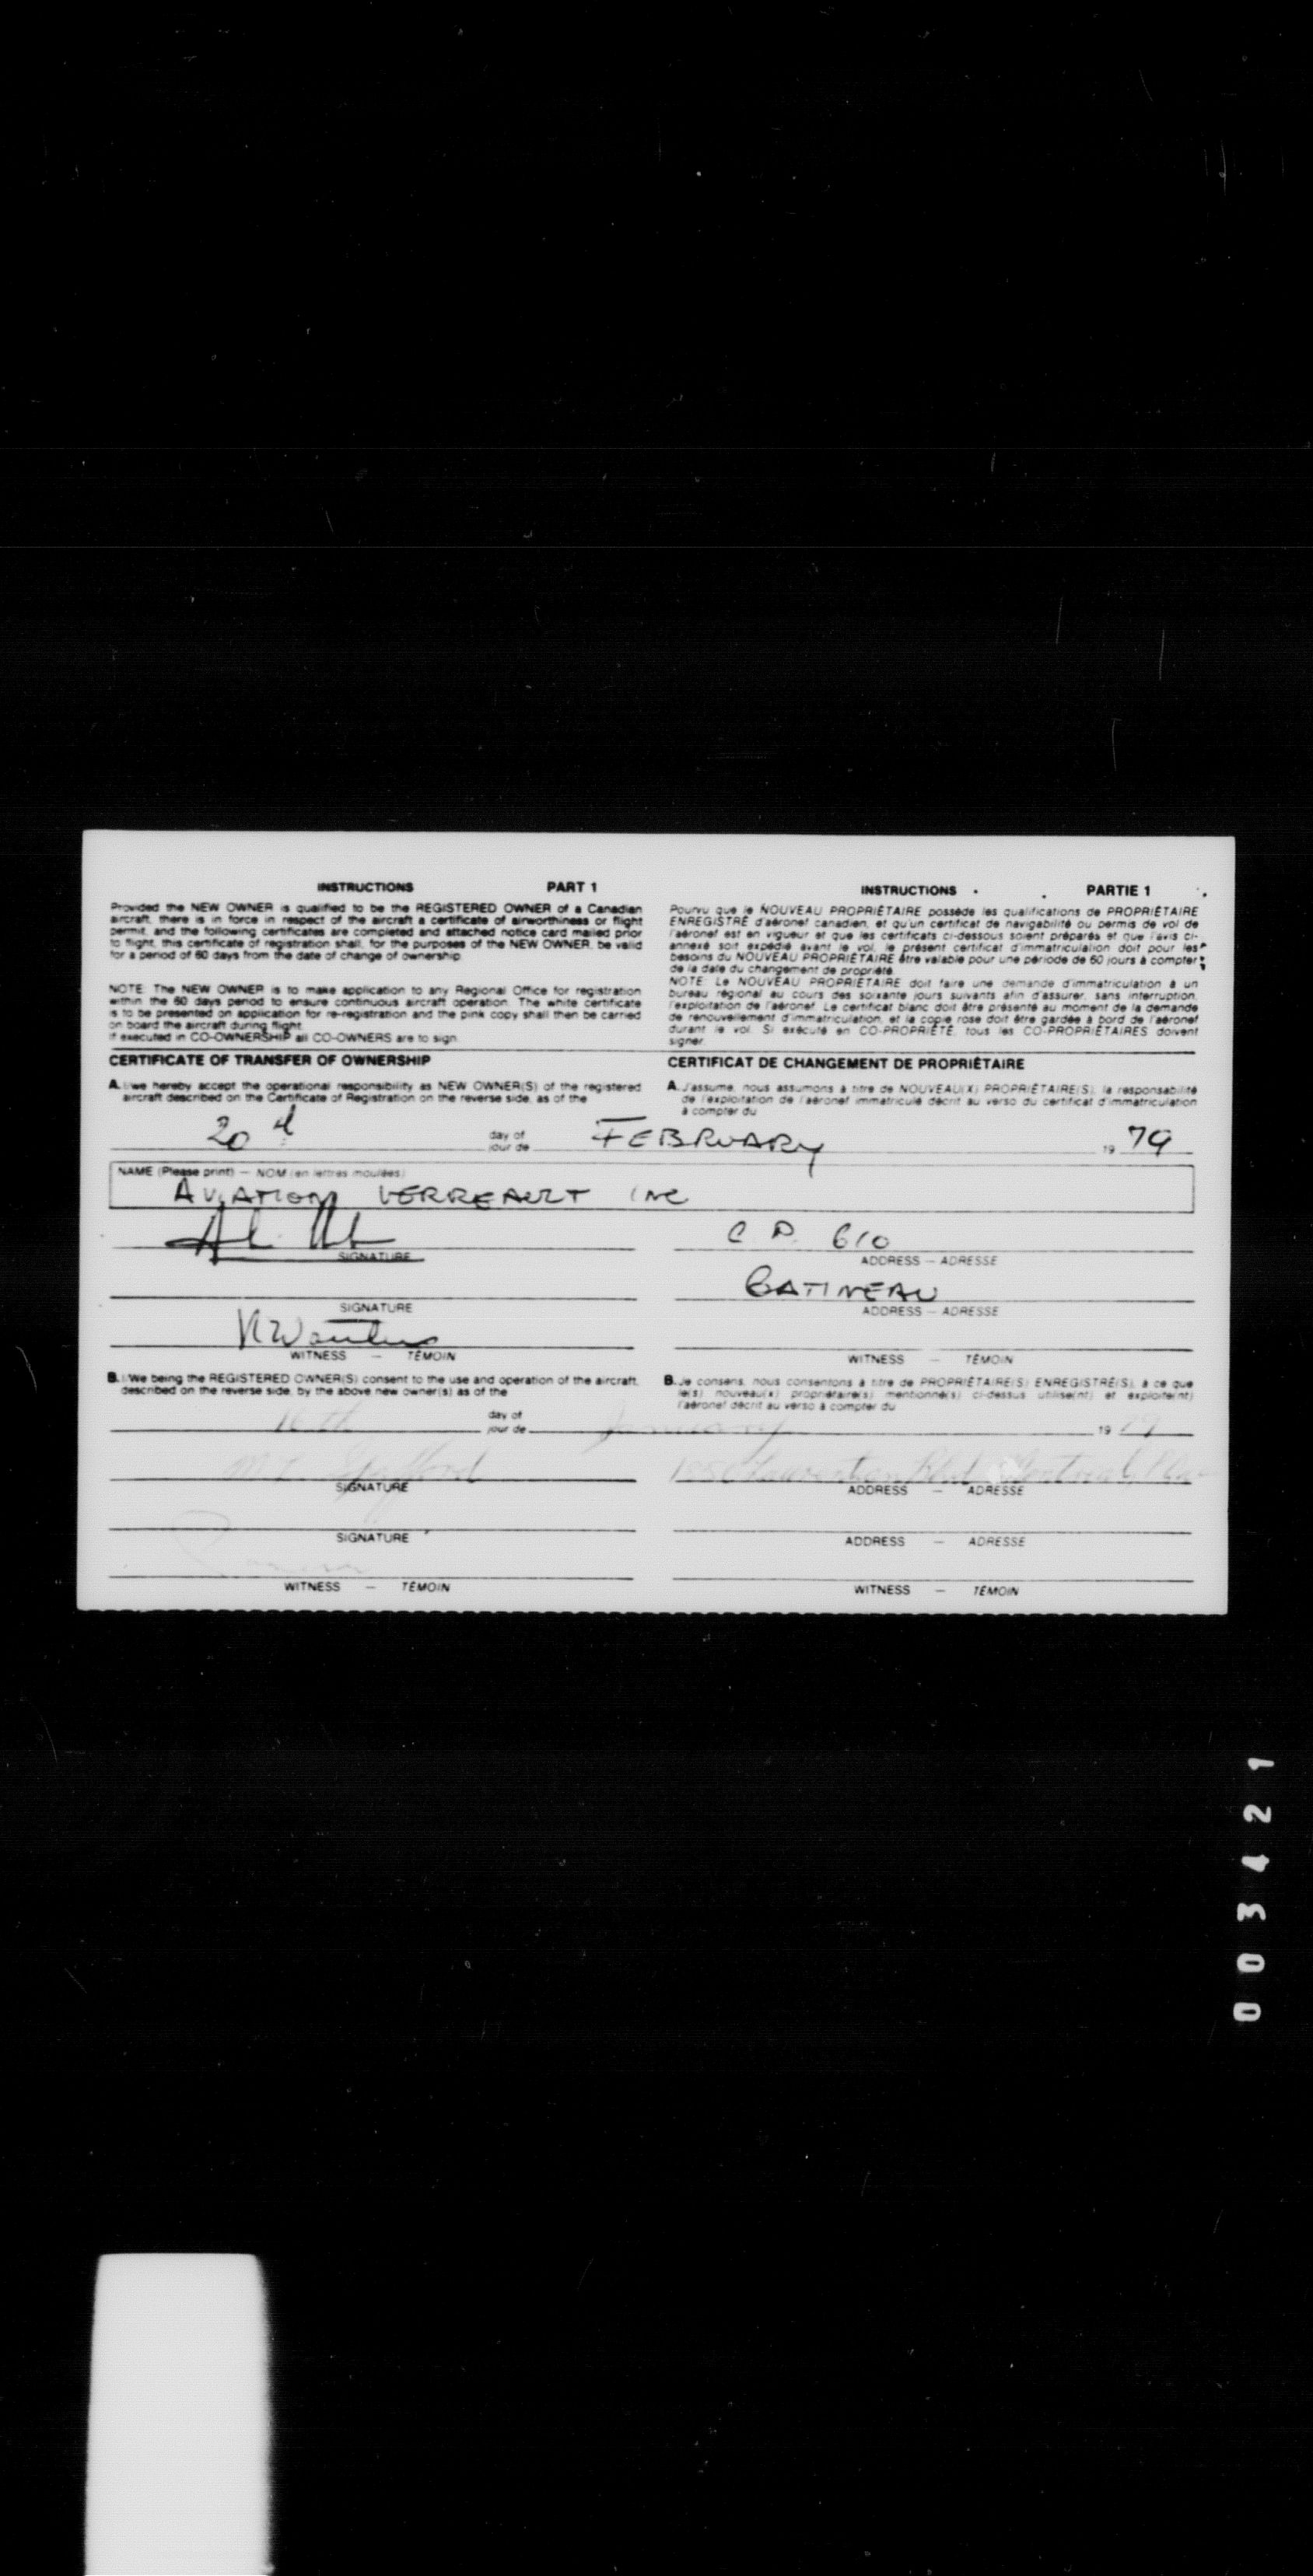 INSTRUCTIONS PART 1
Provided the NEW OWNER is qualified to be the REGISTERED OWNER of a Canadian
aircraft, there is in force in respect of the aircraft a certificate of airworthiness or flight
permit, and the following certificates are completed and attached notice card mailed prior
to flight, this certificate of registration shall, for the purposes of the NEW OWNER, be valid
for a period of 60 days from the date of change of ownership.
NOTE: The NEW OWNER is to make application to any Regional Office for registration
within the 60 days period to ensure continuous aircraft operation. The white certificate
is to be presented on application for re-registration and the pink copy shall then be carried
on board the aircraft during flight.
If executed in CO-OWNERSHIP all CO-OWNERS are to sign.
INSTRUCTIONS PARTIE 1
Pourvu que le NOUVEAU PROPRIÉTAIRE possède les qualifications de PROPRIÉTAIRE
ENREGISTRÉ d'aéronef canadien, et qu'un certificat de navigabilité ou permis de vol de
l'aéronef est en vigueur et que les certificats ci-dessous soient préparés et que l'avis ci-
annexé soit expédié avant le vol, le présent certificat d'immatriculation doit pour les
besoins du NOUVEAU PROPRIÉTAIRE être valable pour une période de 60 jours à compter
de la date du changement de propriété.
NOTE: Le NOUVEAU PROPRIÉTAIRE doit faire une demande d'immatriculation à un
bureau régional au cours des soixante jours suivants afin d'assurer, sans interruption,
l'exploitation de l'aéronef. Le certificat blanc doit être présenté au moment de la demande
de renouvellement d'immatriculation, et la copie rose doit être gardée à bord de l'aéronef
durant le vol. Si exécuté en CO-PROPRIÉTÉ, tous les CO-PROPRIÉTAIRES doivent
signer.
CERTIFICATE OF TRANSFER OF OWNERSHIP
CERTIFICAT DE CHANGEMENT DE PROPRIÉTAIRE
A. I/we hereby accept the operational responsibility as NEW OWNER(S) of the registered
aircraft described on the Certificate of Registration on the reverse side, as of the
A. J'assume, nous assumons à titre de NOUVEAU(X) PROPRIÉTAIRE(S), la responsabilité
de l'exploitation de l'aéronef immatriculé décrit au verso du certificat d'immatriculation
à compter du
20 day of FEBRUARY 19 79
jour de
NAME (Please print) — NOM (en lettres moulées)
AVIATION VERREAULT INC
C P. 610
SIGNATURE ADDRESS — ADRESSE
GATINEAU
SIGNATURE ADDRESS — ADRESSE
WITNESS — TÉMOIN WITNESS — TÉMOIN
B. I/We being the REGISTERED OWNER(S) consent to the use and operation of the aircraft,
described on the reverse side, by the above new owner(s) as of the
B. Je consens, nous consentons à titre de PROPRIÉTAIRE(S) ENREGISTRÉ(S), à ce que
le(s) nouveau(x) propriétaire(s) mentionné(s) ci-dessus utilise(nt) et exploite(nt)
l'aéronef décrit au verso à compter du
16th day of January 19 79
jour de
SIGNATURE ADDRESS — ADRESSE
SIGNATURE ADDRESS — ADRESSE
WITNESS — TÉMOIN WITNESS — TÉMOIN
003421